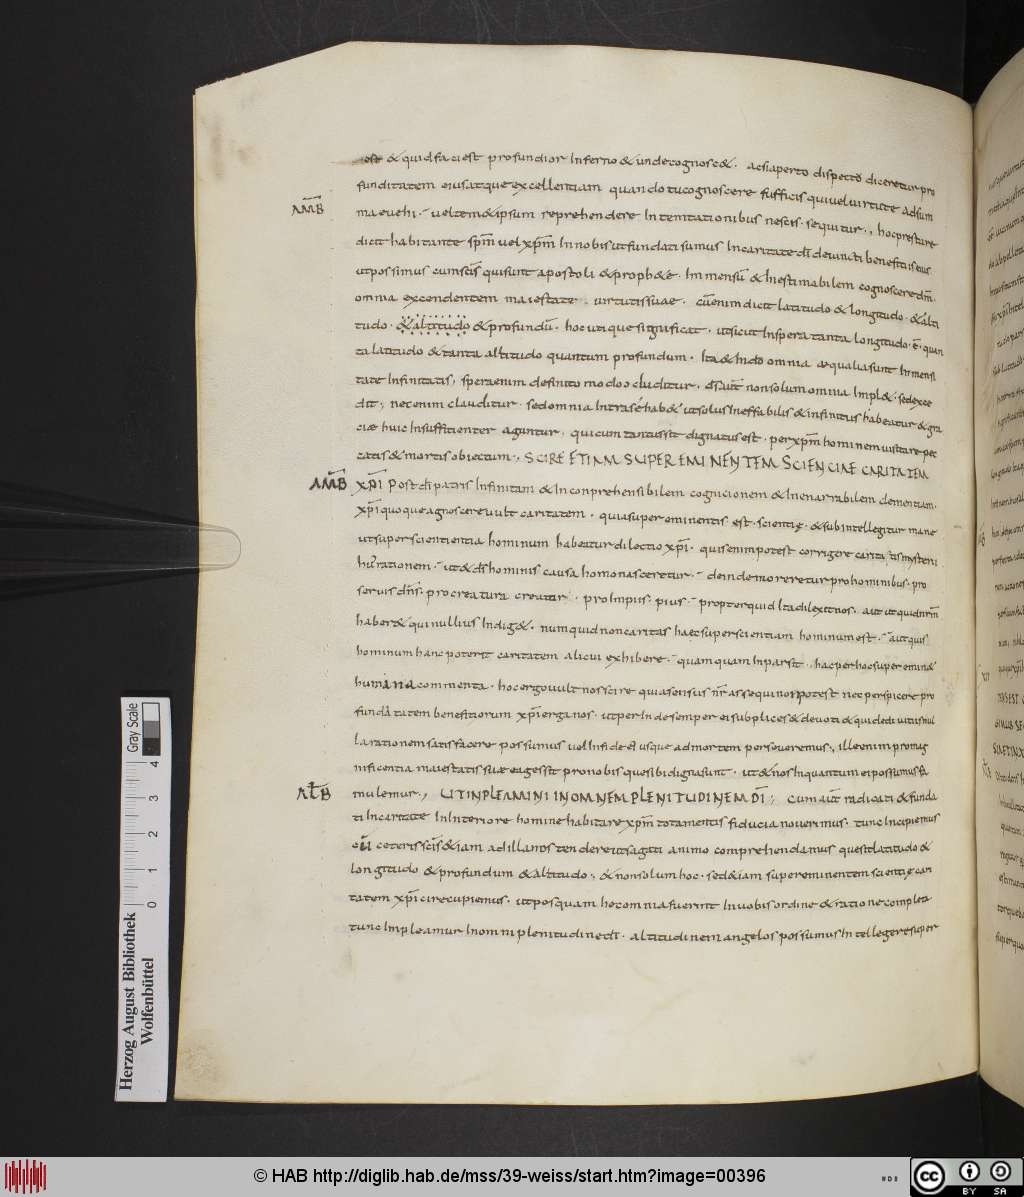 & quid faciest profundior Inferno & unde cognosc&· acsi aperto dispecto diceretur pro
funditatem eius atque excellentiam quando tu cognoscere sufficis qui vel virtute adsum
AMB
ma evehi· vel tem& ipsum reprehendere In temtationibus nescis· sequitur·, hoc prestare
dicit habitante spm̄ vel xpm̄ In nobis ut fundati sumus In caritate dī devincti beneficiis eius
ut possimus cum scīs qui sunt apostoli & proph&ę· Inmensū & Inestimabilem cognoscere dm̄
omnia excendentem maiestate· virtutis suae· cū enim dicit latitudo & longitudo· & alti
tudo· & altitudo & profundū· hoc utique significat· ut sicut In spera tanta longitudo· ē· quan
ta latitudo & tanta altitudo quantum profundum· Ita & In dō omnia aequalia sunt Inmensi
tate Infinitatis, spera enim definito modo cluditur· dś aut̄ non solum omnia Impl&· sed exce
dit, nec enim clauditur· sed omnia Intra se hab& ut solus Ineffabilis & infinitus habeatur & gra
ciæ huic Insufficienter aguntur· qui cum tantus sit dignatus est· per xpm̄ hominem visitare pec
catis & mortis obiectum·, SCIRE ETIAM SUPEREMINENTEM SCIENCIAE CARITATEM
AMB
XPI Post dī patris Infinitam & Inconprehensibilem cognicionem & Inenarrabilem clementiam·
xpī quoque agnoscere vult caritatem· quia supereminentis est· scientię· & subintellegitur mane
ut super scientientia hominum habeatur dilectio xpī· quis enim potest corrigere caritatis mysterii
huius rationem· ut & dś hominis causa homo nasceretur· deinde moreretur pro hominibus· pro
servis dnś· pro creatura creator· pro Impiis· pius· propter quid Ita dilexit nos· aut ut quid nrm̄
haber& qui nullius Indig&· numquid non caritas haec super scientiam hominum est· aut quis
hominum hanc poterit caritatem alicui exhibere· quamquam In pari sit· hac per hoc superemin&
humana commenta· hoc ergo vult nos scire quia sensus nr̄ assequi non potest nec perspicere pro
funditatem beneficiorum xpī erga nos· ut per Inde semper ei subplices & devoti & qui dediti vitiis nul
la rationem satisfacere possumus vel In fide eius usque ad mortem perseveremus, ille enim pro mag
nificentia maiestatis suæ ea gessit pro nobis que sibi digna sunt· ut & nos In quantum ei possumus fa
ALB
mulemur, UT INPLEAMINI IN OMNEM PLENITUDINEM DĪ; Cum aut̄ radicati & funda
ti In caritate In Interiore homine habitare xpm̄ tota mentis fiducia noverimus· tunc Incipiemus
cū ceteris scīs & iam ad illa nos tendere ut sagati animo comprehendamus que sit latitudo &
longitudo & profundum & altitudo, & non solum hoc· sed & iam supereminentem scientię cari
tatem xpī cire cupiemus· ut posquam hec omnia fuerint In vobis ordine & ratione completa
tunc Impleamur In omni plenitudine dī· altitudinem angelos possumus Intellegere super
Gray Scale
0 1 2 3 4
Herzog August Bibliothek
Wolfenbüttel
© HAB http://diglib.hab.de/mss/39-weiss/start.htm?image=00396
cc BY SA